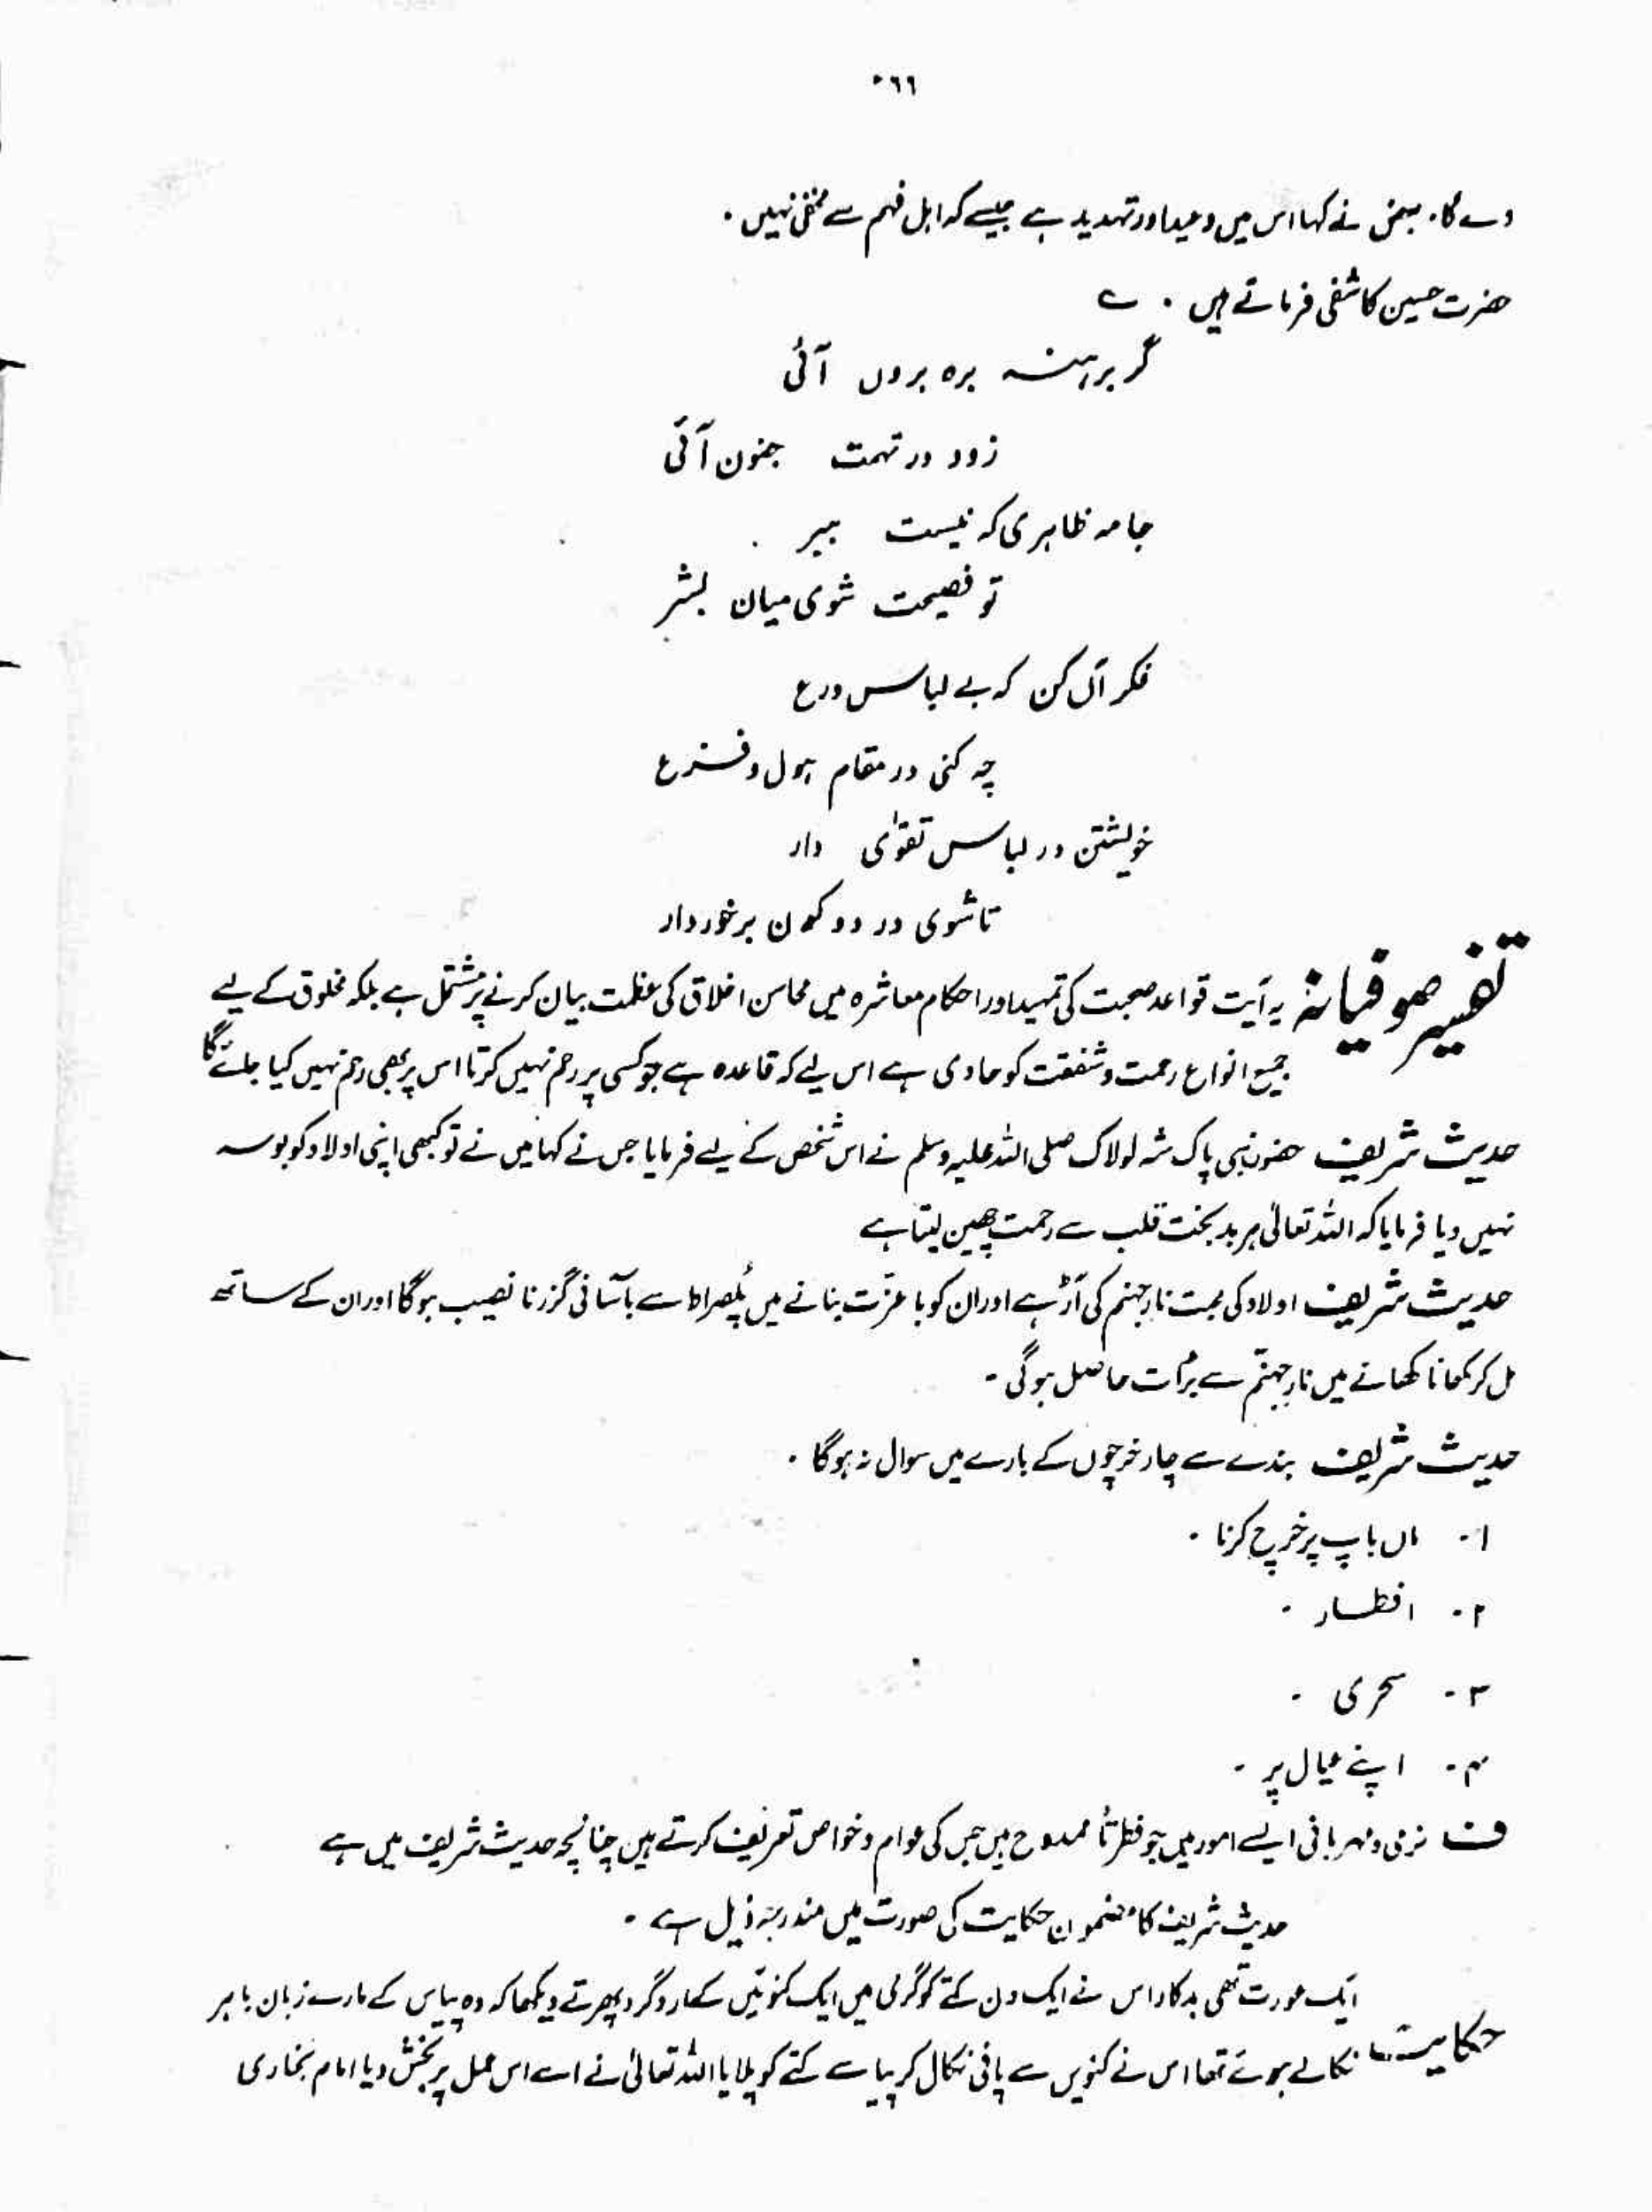 ۰۶۶
دے گا۔ بعض نے کہا اس میں وعید اور تہدید ہے جیسے کہ اہل فہم سے مخفی نہیں ۔
حضرت حسین کاشفی فرماتے ہیں ۔ ؎
گر برہنہ برہ بروں آئی
زود در تہمت جنون آئی
جامہ ظاہری کہ نیست ببر
تو فضیحت شوی میان بشر
فکر آں کن کہ بے لباس ورع
چہ کنی در مقام ہول و فزع
خویشتن در لباس تقوٰی دار
تا شوی در دو کون برخوردار
تفسیر صوفیانہ یہ آیت قواعد صحبت کی تمہید اور احکام معاشرہ میں محاسن اخلاق کی عظمت بیان کرنے پر مشتمل ہے بلکہ مخلوق کے لیے
جمیع انواع رحمت و شفقت کو حاوی ہے اس لیے کہ قاعدہ ہے جو کسی پر رحم نہیں کرتا اس پر بھی رحم نہیں کیا جائے گا
حدیث شریف حضور نبی پاک شہ لولاک صلی اللہ علیہ وسلم نے اس شخص کے لیے فرمایا جس نے کہا میں نے تو کبھی اپنی اولاد کو بوسہ
نہیں دیا فرمایا کہ اللہ تعالٰی ہر بدبخت قلب سے رحمت چھین لیتا ہے
حدیث شریف اولاد کی محبت نارِ جہنم کی آڑ ہے اور ان کو با عزّت بنانے میں پُلصراط سے بآسانی گزرنا نصیب ہوگا اور ان کے ساتھ
مل کر کھانا کھانے میں نارِ جہنّم سے برأت حاصل ہوگی ۔
حدیث شریف بندے سے چار خرچوں کے بارے میں سوال نہ ہوگا ۔
۱۔ ماں باپ پر خرچ کرنا ۔
۲۔ افطار ۔
۳۔ سحری ۔
۴۔ اپنے عیال پر ۔
ف نرمی و مہربانی ایسے امور ہیں جو فطرتاً ممدوح ہیں جس کی عوام و خواص تعریف کرتے ہیں چنانچہ حدیث شریف میں ہے
حدیث شریف کا مضمون حکایت کی صورت میں مندرجہ ذیل ہے ۔
ایک عورت تھی بدکار اس نے ایک دن کتے کو گرمی میں ایک کنوئیں کے اردگرد پھرتے دیکھا کہ وہ پیاس کے مارے زبان باہر
حکایت نکالے ہوئے تھا اس نے کنویں سے پانی نکال کر پیاسے کتے کو پلایا اللہ تعالٰی نے اسے اس عمل پر بخش دیا امام بخاری